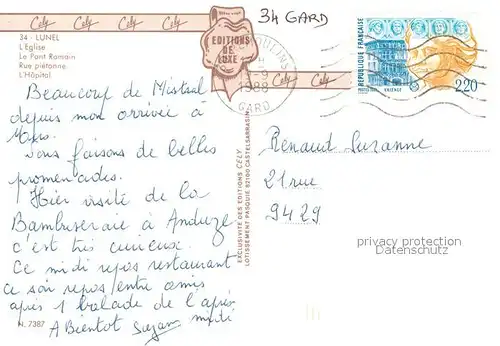 34 GARD
Cely Cely
34 - LUNEL
L'Eglise
Le Pont Romain
Rue piétonne
L'Hôpital
EDITIONS
DE
LUXE
Cely Cely
1988
GARD
REPUBLIQUE FRANÇAISE
VALENCE
2,20
Beaucoup de Mistral
depuis mon arrivée à
Nous faisons de belles
promenades.
Hier visite de la
Bambuseraie à Anduze
c'est très curieux.
Ce midi repos restaurant
ce soir repos entre amis
après 1 balade de l'après
midi
A Bientôt Suzan
N. 7387
EXCLUSIVITE DES EDITIONS CELY
LOTISSEMENT PASQUIE 82100 CASTELSARRASIN
Renaud Suzanne
21 rue
9429
privacy protection
Datenschutz